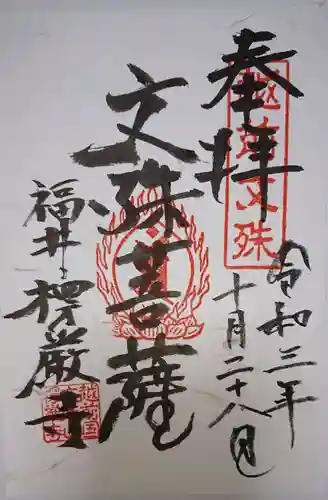 奉拝
越前文殊
令和三年
十月二十八日
文殊菩薩
福井・楞厳寺